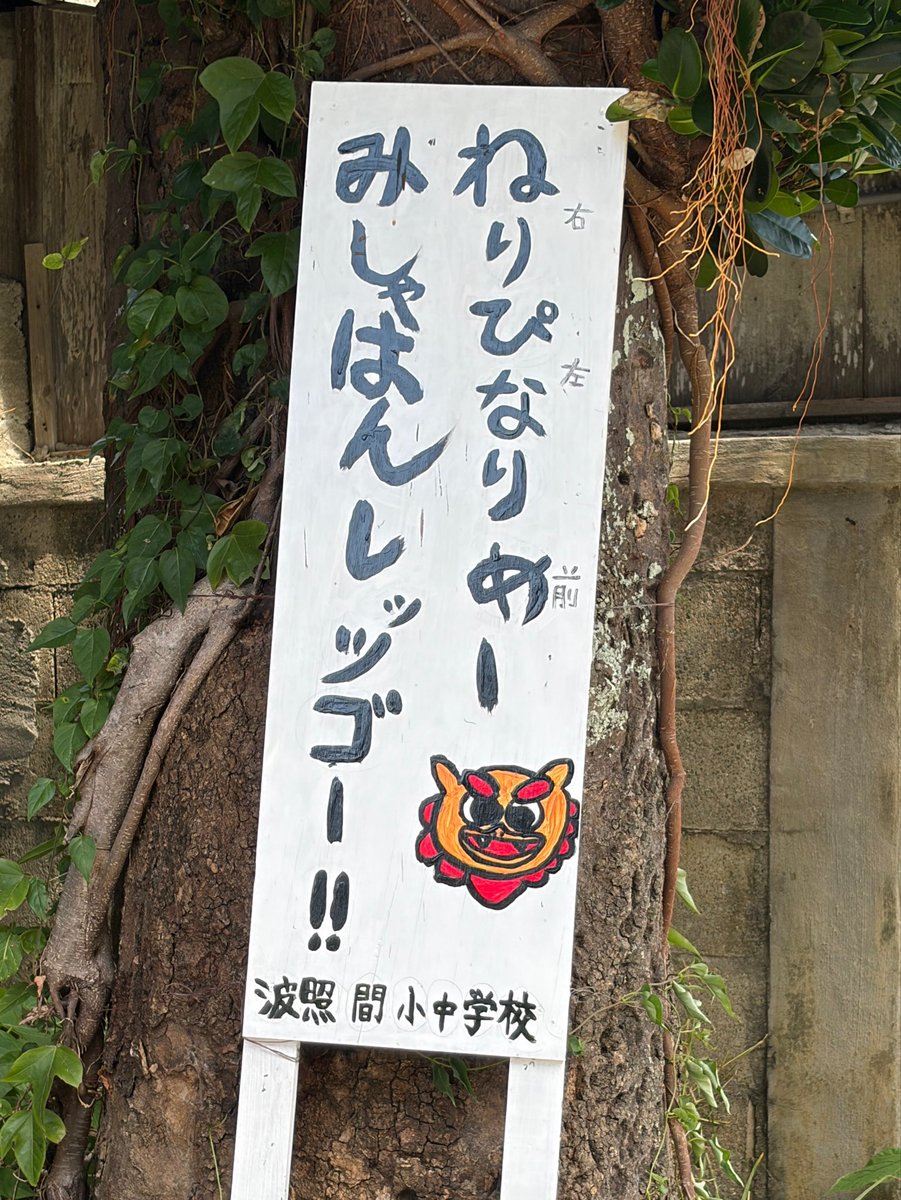 ねりぴなりめー
右
左
前
みしゃはんレッツゴー!!
波照間小中学校